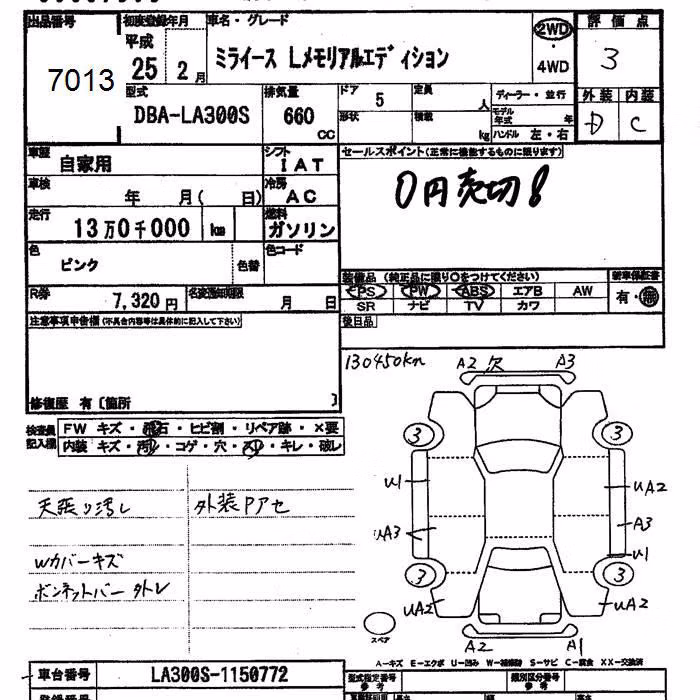 出品番号 初度登録年月 車名・グレード 2WD 評価点
7013 平成 25 2月 ミライース Lメモリアルエディション ・ 4WD 3
型式 排気量 ドア 定員 ディーラー・並行 外装 内装
DBA-LA300S 660 CC 5 人 モデル年式 年 D C
形状 積載 kg ハンドル 左・右
車歴 自家用 シフト IAT セールスポイント(正常に機能するものに限ります)
車検 年 月( 日) 冷房 AC 0円売切!
走行 13万0千000 km 燃料 ガソリン
色 ピンク 色替 色コード
装備品 (純正品に限り○をつけてください) 新車保証書
R券 7,320円 名変通知期限 月 日 PS PW ABS エアB AW 有・無
SR ナビ TV カワ
注意事項申告欄(不具合内容等は具体的に記入して下さい) 後日品
130450km A2 欠 A3
修復歴 有〔箇所 〕
検査員記入欄 FW キズ・飛石・ヒビ割・リペア跡・×要
内装 キズ・汚れ・コゲ・穴・スレ・キレ・破レ
3 3
U1 UA2
天張り汚レ 外装Pアセ
UA3 A3
Wカバーキズ U1
ボンネットバー外レ 3 3
UA2 UA2
スペア A2 A1
A-キズ E-エクボ U-凹み W-補修跡 S-サビ C-腐食 XX-交換済
車台番号 LA300S-1150772 型式指定番号 類別区分番号
参考 参考